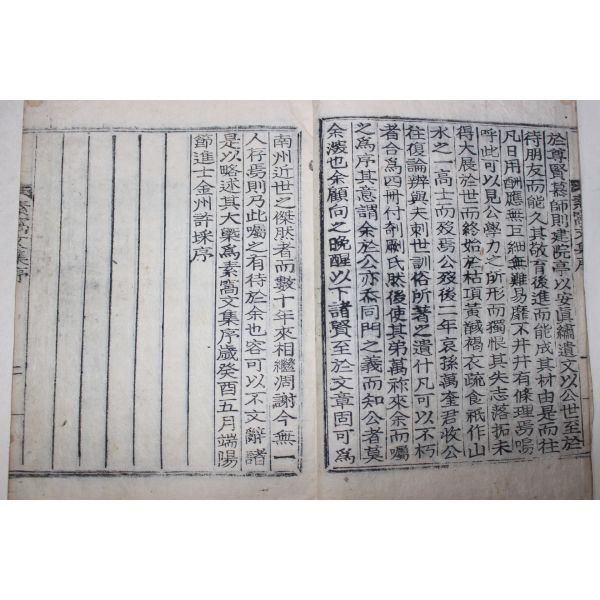 於尊賢慕師則建院亭以安眞繡遺文以公世至於
待朋友而能久其敬育後進而能成其材由是而往
凡日用酬應無巨細無難易靡不井井有條理焉嗚
呼此可見公學力之所形而獨恨其失志落拓未
得大展於世而終始於枯項黃馘褐衣疏食祇作山
水之一高士而歿焉公歿後二年哀孫萬奎君收公
往復論辨與夫刺世訓俗所著之遺什凡可以不朽
者合爲四冊付剞劂氏然後使其弟萬祚來余而囑
之爲序其意謂余於公亦忝同門之義而知公者莫
余深也余顧向之晩醒以下諸賢至於文章固可爲
南州近世之傑然者而數十年來相繼凋謝今無一
人存焉則乃此囑之有待於余也容可以不文辭諸
是以略述其大槩爲素窩文集序歲癸酉五月端陽
節進士金州許埰序
素窩文集序